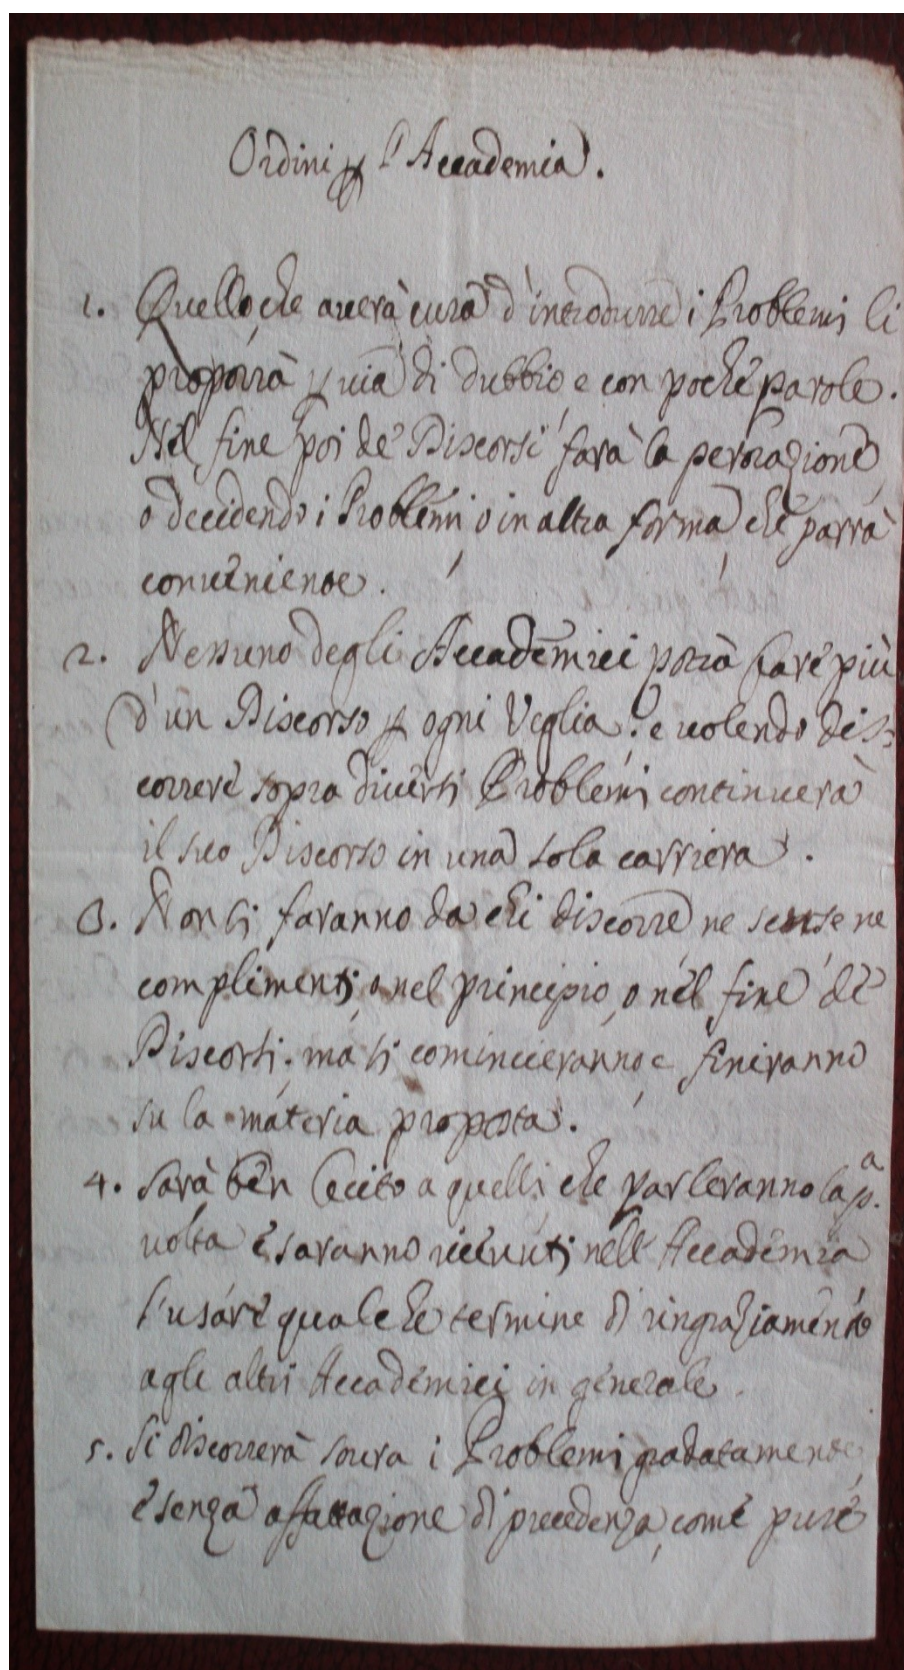 Ordini p l'Accademia.
1. Quello che averà cura d'introdurre i Problemi li
proporrà p via di dubbio e con poche parole.
Nel fine poi de' Discorsi farà la perorazione,
o decidendo i Problemi, o in altra forma, che parrà
conveniente.
2. Nessuno degli Accademici potrà fare più
d'un Discorso p ogni Veglia; e volendo dis-
correre sopra diversi Problemi continuerà
il suo Discorso in una sola carriera.
3. Non si faranno da chi discorre ne scuse, ne
complimenti, o nel principio, o nel fine de'
Discorsi; ma si comincieranno e finiranno
su la materia proposta.
4. Sarà ben lecito a quelli, che parleranno la p.a
volta e saranno ricevuti nell'Accademia
l'usare qualche termine di ringraziamento
agli altri Accademici in generale.
5. Si discorrerà sovra i Problemi gradatamente,
e senza affettazione di precedenza, come pure